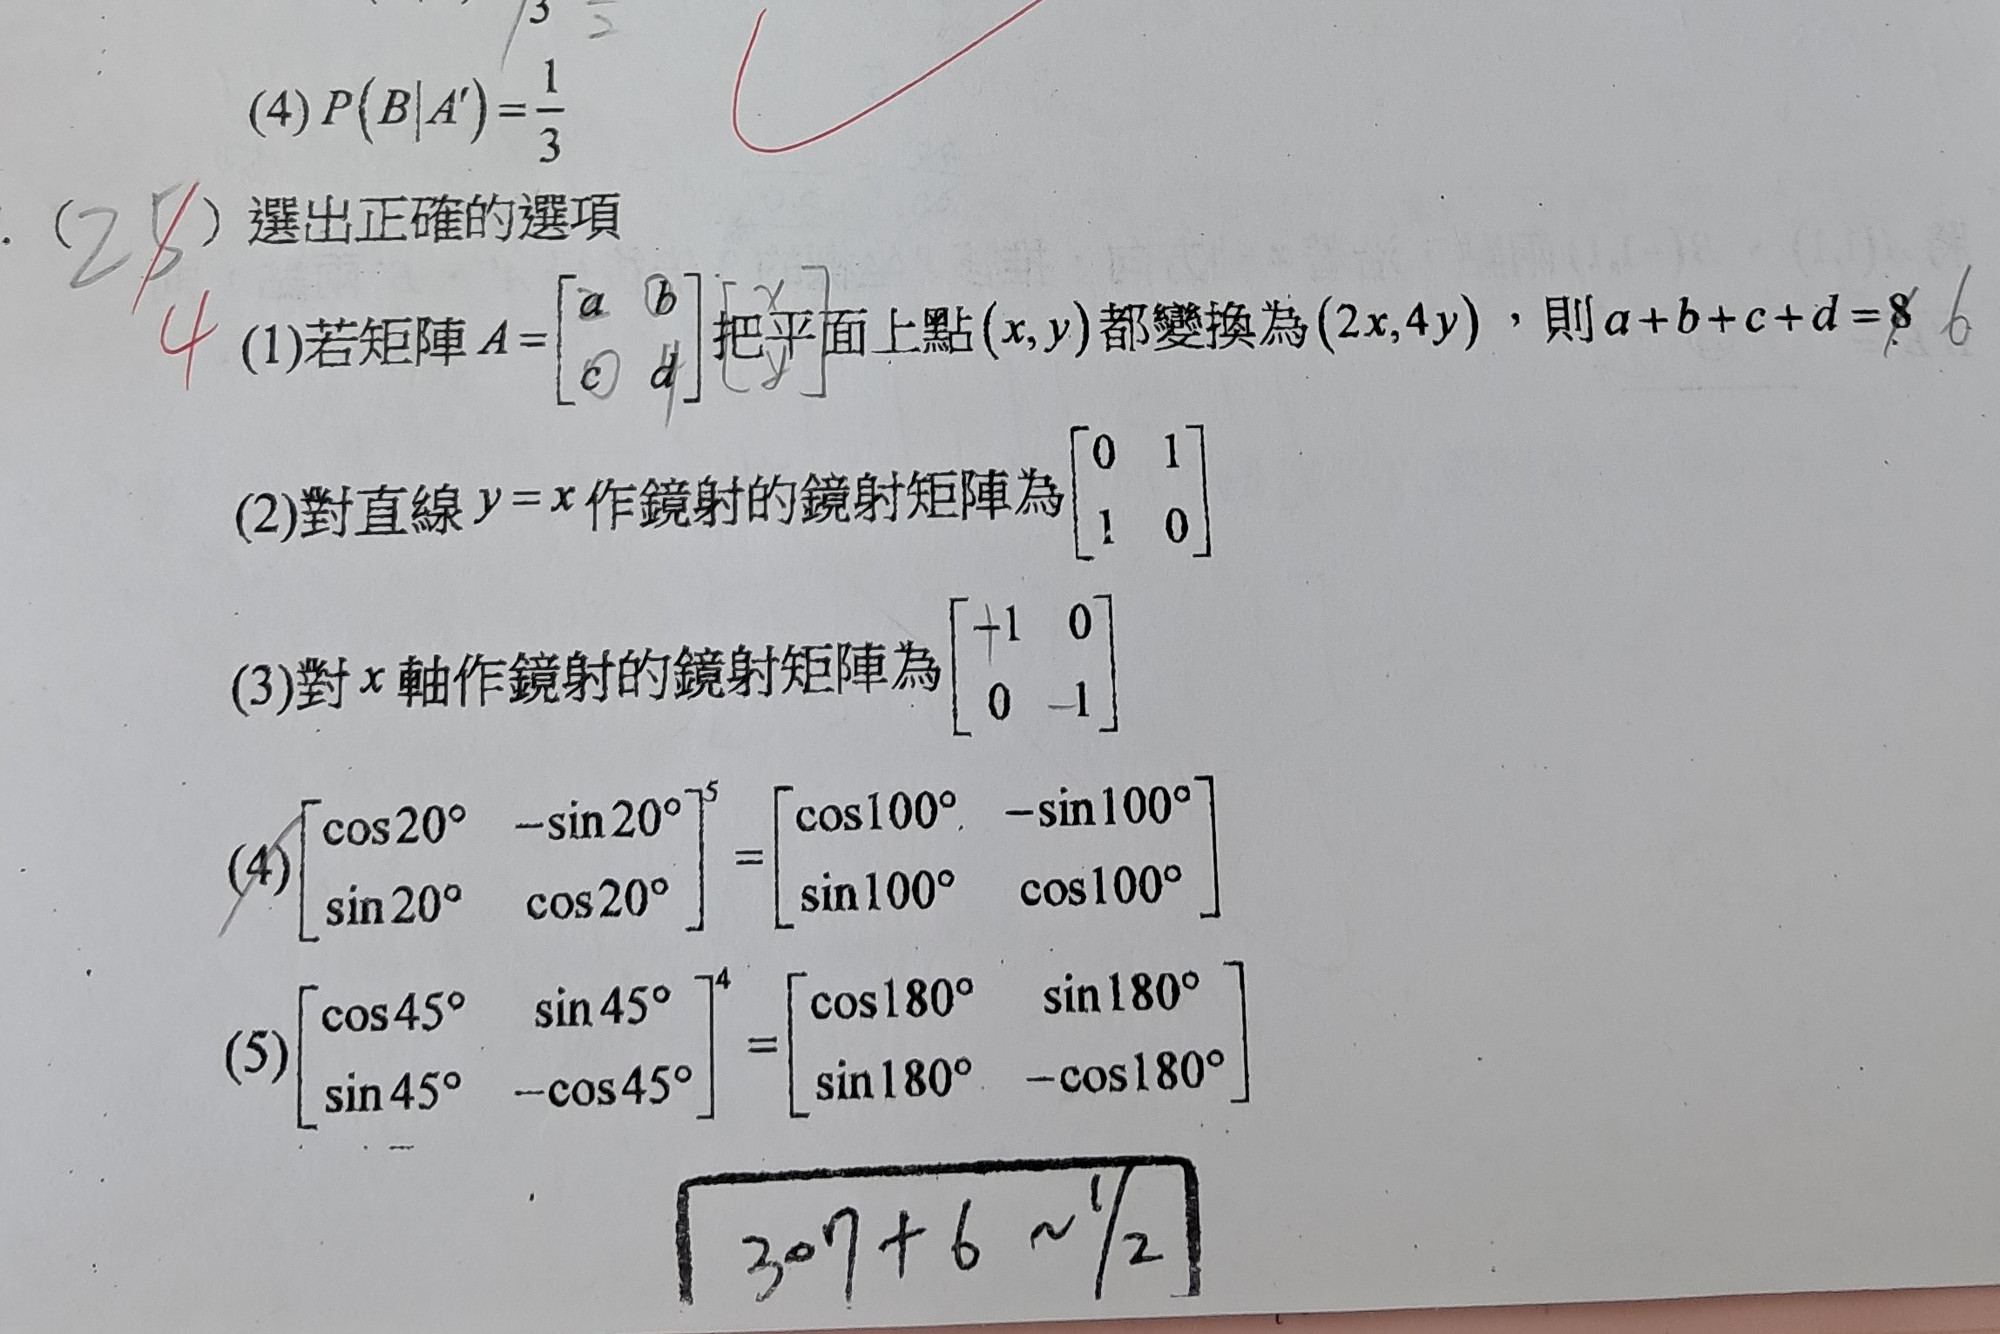 3 2
(4) P(B|A′) = 1/3
(25) 選出正確的選項
4
(1)若矩陣 A = [a b; c d] 把平面上點(x, y)都變換為(2x,4y)，則a+b+c+d=8 6
[x; y]
(2)對直線 y = x 作鏡射的鏡射矩陣為 [0 1; 1 0]
(3)對 x 軸作鏡射的鏡射矩陣為 [-1 0; 0 -1]
(4) [cos20° -sin20°; sin20° cos20°]^5 = [cos100° -sin100°; sin100° cos100°]
(5) [cos45° sin45°; sin45° -cos45°]^4 = [cos180° sin180°; sin180° -cos180°]
307+6 ~1/2